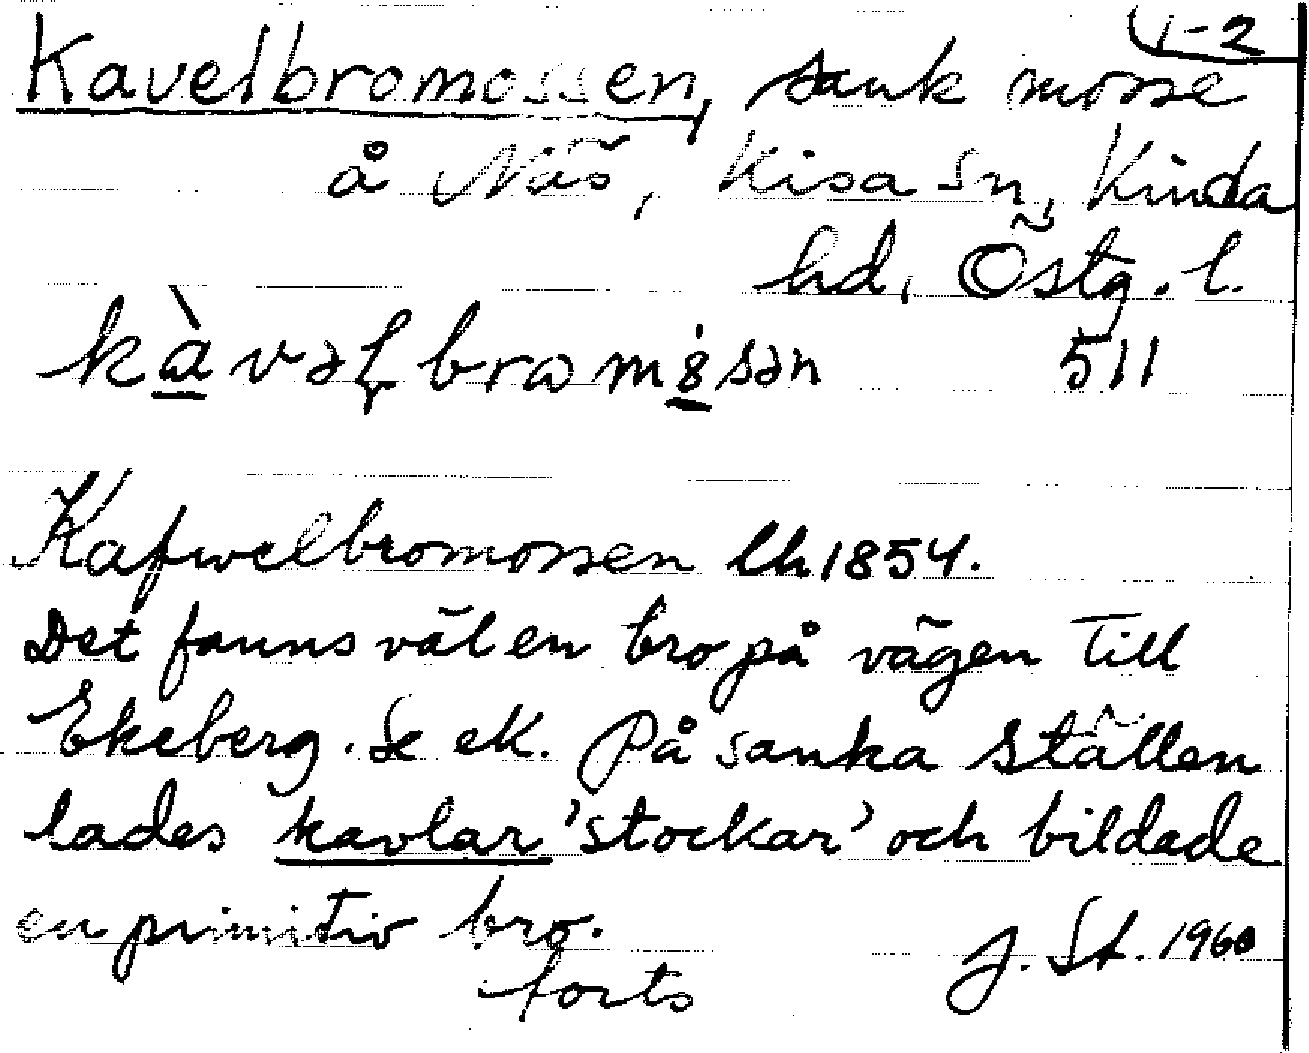 1-2
Kavelbromossen, sank mosse
å Näs, Kisa sn, Kinda
hd, Östg. l.
kàvəɭbrɷmɵ̇sən 511
Kafwelbromossen lh 1854.
Det fanns väl en bro på vägen till
Ekeberg. Se ek. På sanka ställen
lades kavlar 'stockar' och bildade
en primitiv bro.
forts J. St. 1960